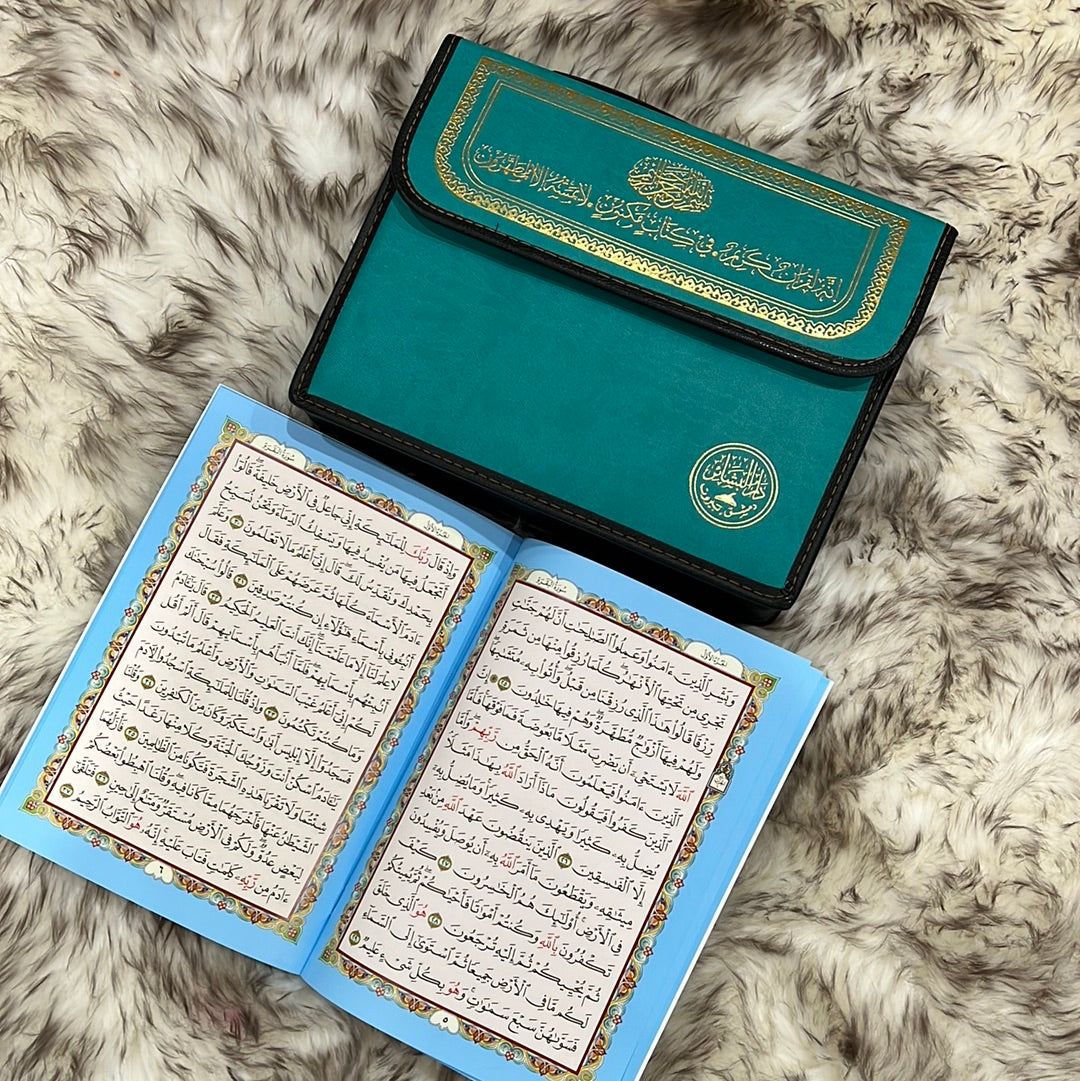 بِسْمِ اللَّهِ الرَّحْمَٰنِ الرَّحِيمِ
إِنَّهُ لَقُرْآنٌ كَرِيمٌ . فِي كِتَابٍ مَكْنُونٍ . لَا يَمَسُّهُ إِلَّا الْمُطَهَّرُونَ
دار البشائر
دمشق
سُورَةُ البَقَرَةِ
الجُزْءُ الأَوَّلُ
وَبَشِّرِ ٱلَّذِينَ ءَامَنُوا۟ وَعَمِلُوا۟ ٱلصَّٰلِحَٰتِ أَنَّ لَهُمْ جَنَّٰتٍ
تَجْرِى مِن تَحْتِهَا ٱلْأَنْهَٰرُ كُلَّمَا رُزِقُوا۟ مِنْهَا مِن ثَمَرَةٍ
رِّزْقًا قَالُوا۟ هَٰذَا ٱلَّذِى رُزِقْنَا مِن قَبْلُ وَأُتُوا۟ بِهِۦ مُتَشَٰبِهًا
وَلَهُمْ فِيهَآ أَزْوَٰجٌ مُّطَهَّرَةٌ وَهُمْ فِيهَا خَٰلِدُونَ ٢٥ إِنَّ
ٱللَّهَ لَا يَسْتَحْىِۦٓ أَن يَضْرِبَ مَثَلًا مَّا بَعُوضَةً فَمَا فَوْقَهَا فَأَمَّا
ٱلَّذِينَ ءَامَنُوا۟ فَيَعْلَمُونَ أَنَّهُ ٱلْحَقُّ مِن رَّبِّهِمْ وَأَمَّا
ٱلَّذِينَ كَفَرُوا۟ فَيَقُولُونَ مَاذَآ أَرَادَ ٱللَّهُ بِهَٰذَا مَثَلًا
يُضِلُّ بِهِۦ كَثِيرًا وَيَهْدِى بِهِۦ كَثِيرًا وَمَا يُضِلُّ بِهِۦٓ
إِلَّا ٱلْفَٰسِقِينَ ٢٦ ٱلَّذِينَ يَنقُضُونَ عَهْدَ ٱللَّهِ مِنۢ بَعْدِ
مِيثَٰقِهِۦ وَيَقْطَعُونَ مَآ أَمَرَ ٱللَّهُ بِهِۦٓ أَن يُوصَلَ وَيُفْسِدُونَ
فِى ٱلْأَرْضِ أُو۟لَٰٓئِكَ هُمُ ٱلْخَٰسِرُونَ ٢٧ كَيْفَ
تَكْفُرُونَ بِٱللَّهِ وَكُنتُمْ أَمْوَٰتًا فَأَحْيَٰكُمْ ثُمَّ يُمِيتُكُمْ
ثُمَّ يُحْيِيكُمْ ثُمَّ إِلَيْهِ تُرْجَعُونَ ٢٨ هُوَ ٱلَّذِى خَلَقَ
لَكُم مَّا فِى ٱلْأَرْضِ جَمِيعًا ثُمَّ ٱسْتَوَىٰٓ إِلَى ٱلسَّمَآءِ
فَسَوَّىٰهُنَّ سَبْعَ سَمَٰوَٰتٍ وَهُوَ بِكُلِّ شَىْءٍ عَلِيمٌ ٢٩
٥
سُورَةُ البَقَرَةِ
الجُزْءُ الأَوَّلُ
وَإِذْ قَالَ رَبُّكَ لِلْمَلَٰٓئِكَةِ إِنِّى جَاعِلٌ فِى ٱلْأَرْضِ خَلِيفَةً قَالُوٓا۟
أَتَجْعَلُ فِيهَا مَن يُفْسِدُ فِيهَا وَيَسْفِكُ ٱلدِّمَآءَ وَنَحْنُ نُسَبِّحُ
بِحَمْدِكَ وَنُقَدِّسُ لَكَ قَالَ إِنِّىٓ أَعْلَمُ مَا لَا تَعْلَمُونَ ٣٠ وَعَلَّمَ
ءَادَمَ ٱلْأَسْمَآءَ كُلَّهَا ثُمَّ عَرَضَهُمْ عَلَى ٱلْمَلَٰٓئِكَةِ فَقَالَ
أَنۢبِـُٔونِى بِأَسْمَآءِ هَٰٓؤُلَآءِ إِن كُنتُمْ صَٰدِقِينَ ٣١ قَالُوا۟ سُبْحَٰنَكَ
لَا عِلْمَ لَنَآ إِلَّا مَا عَلَّمْتَنَآ إِنَّكَ أَنتَ ٱلْعَلِيمُ ٱلْحَكِيمُ ٣٢ قَالَ يَٰٓـَٔادَمُ
أَنۢبِئْهُم بِأَسْمَآئِهِمْ فَلَمَّآ أَنۢبَأَهُم بِأَسْمَآئِهِمْ قَالَ أَلَمْ أَقُل
لَّكُمْ إِنِّىٓ أَعْلَمُ غَيْبَ ٱلسَّمَٰوَٰتِ وَٱلْأَرْضِ وَأَعْلَمُ مَا تُبْدُونَ
وَمَا كُنتُمْ تَكْتُمُونَ ٣٣ وَإِذْ قُلْنَا لِلْمَلَٰٓئِكَةِ ٱسْجُدُوا۟ لِـَٔادَمَ
فَسَجَدُوٓا۟ إِلَّآ إِبْلِيسَ أَبَىٰ وَٱسْتَكْبَرَ وَكَانَ مِنَ ٱلْكَٰفِرِينَ ٣٤ وَقُلْنَا
يَٰٓـَٔادَمُ ٱسْكُنْ أَنتَ وَزَوْجُكَ ٱلْجَنَّةَ وَكُلَا مِنْهَا رَغَدًا حَيْثُ
شِئْتُمَا وَلَا تَقْرَبَا هَٰذِهِ ٱلشَّجَرَةَ فَتَكُونَا مِنَ ٱلظَّٰلِمِينَ ٣٥ فَأَزَلَّهُمَا
ٱلشَّيْطَٰنُ عَنْهَا فَأَخْرَجَهُمَا مِمَّا كَانَا فِيهِ وَقُلْنَا ٱهْبِطُوا۟ بَعْضُكُمْ
لِبَعْضٍ عَدُوٌّ وَلَكُمْ فِى ٱلْأَرْضِ مُسْتَقَرٌّ وَمَتَٰعٌ إِلَىٰ حِينٍ ٣٦ فَتَلَقَّىٰٓ
ءَادَمُ مِن رَّبِّهِۦ كَلِمَٰتٍ فَتَابَ عَلَيْهِ إِنَّهُۥ هُوَ ٱلتَّوَّابُ ٱلرَّحِيمُ ٣٧
٦